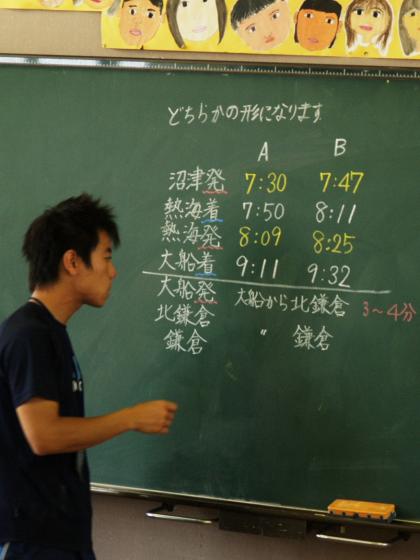 どちらかの形になります
A B
沼津発 7:30 7:47
熱海着 7:50 8:11
熱海発 8:09 8:25
大船着 9:11 9:32
大船発 大船から北鎌倉 3〜4分
北鎌倉
鎌倉 〃 鎌倉